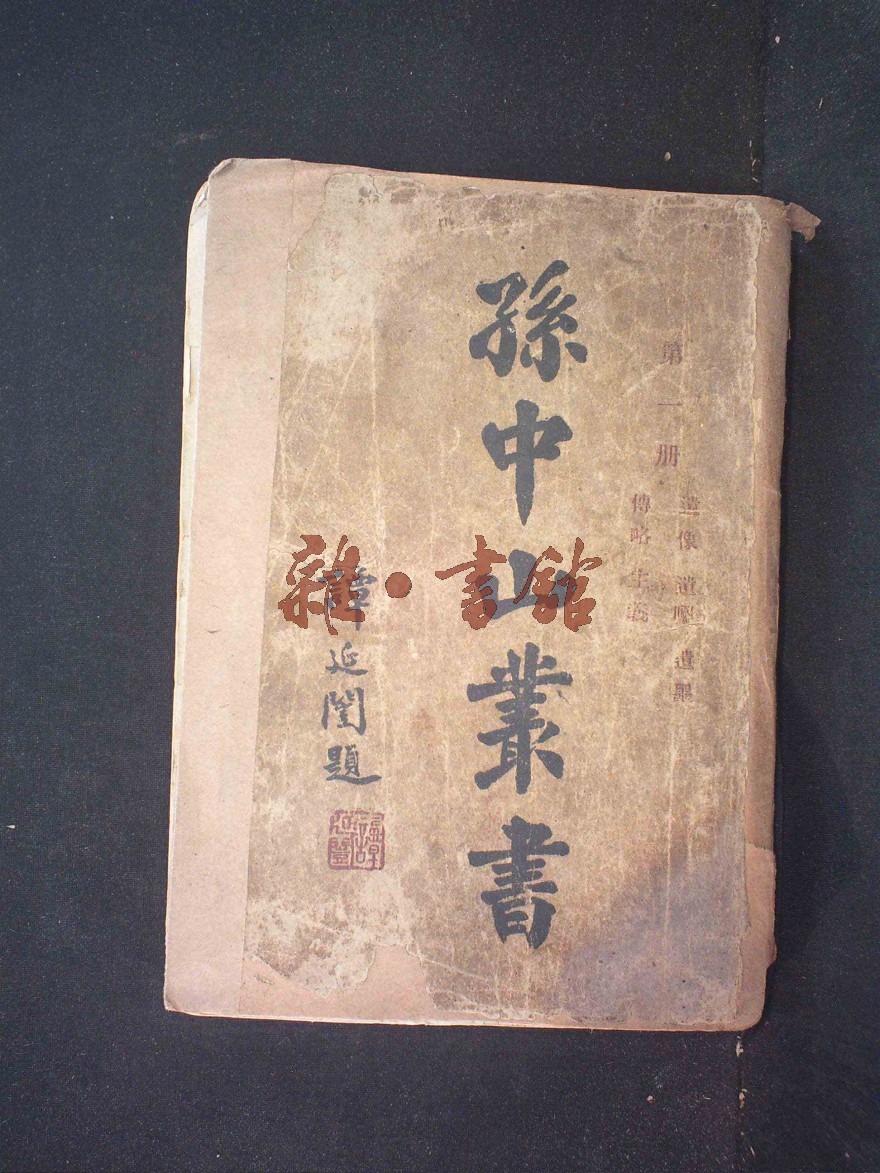 第一册
遺像 遺囑 遺墨
傳略 主義
孫中山叢書
譚延闓題
雜·書館